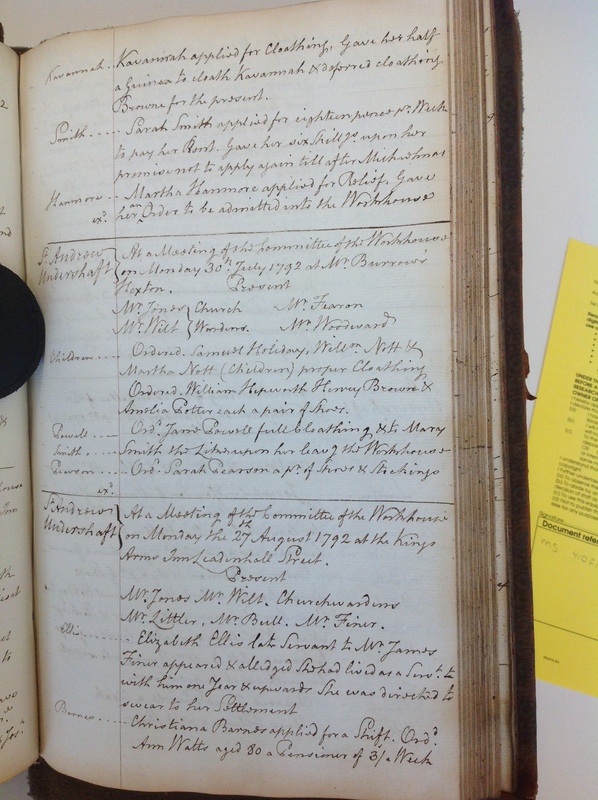 Kavannah . Kavannah applied for Cloathing, Gave her half
a Guinea to cloath Kavannah & deferred cloathing
Browne for the present.
Smith .... Sarah Smith applied for eighteen pence pr. Week
to pay her Rent. Gave her six Shillgs upon her
promise not to apply again till after Michaelmas
Hanmore .. Martha Hanmore applied for Relief, Gave
exd. her an Order to be admitted into the Workhouse
St. Andrew } At a Meeting of the Committee of the Workhouse
Undershaft } on Monday 30th. July 1792 at Mr. Burrows
Hoxton. Present
Mr. Jones { Church Mr. Fearon
Mr. Wilt { Wardens. Mr. Woodward
Children .... Ordered. Samuel Holiday, Willm. Nott &
Martha Nott (Children) proper Cloathing
Ordered. William Hepworth Harvey Brown &
Amelia Potter each a pair of Shoes.
Powell .... Ordd. Jane Powell full Cloathing & to Mary
Smith .... Smith the Like upon her leavg the Workhouse
Pearson .... Ordd. Sarah Pearson a pr. of Shoes & Stockings
exd.
St. Andrew } At a Meeting of the Committee of the Workhouse
Undershaft } on Monday the 27th August 1792 at the Kings
Arms Inn Leadenhall Street.
Present
Mr. Jones Mr. Wilt. Churchwardens
Mr. Littler, Mr. Bull. Mr. Finer.
Ellis .... Elizabeth Ellis late Servant to Mr. James
Finer appeared & alledged She had lived as a Servt. to
with him one Year & upwards She was directed to
swear to her Settlement
Barnes .... Christiana Barnes applied for a Shift. Ordd.
Ann Watts aged 80 a Pensioner of 3/ a Week
Signature
Document refer
MS 4102